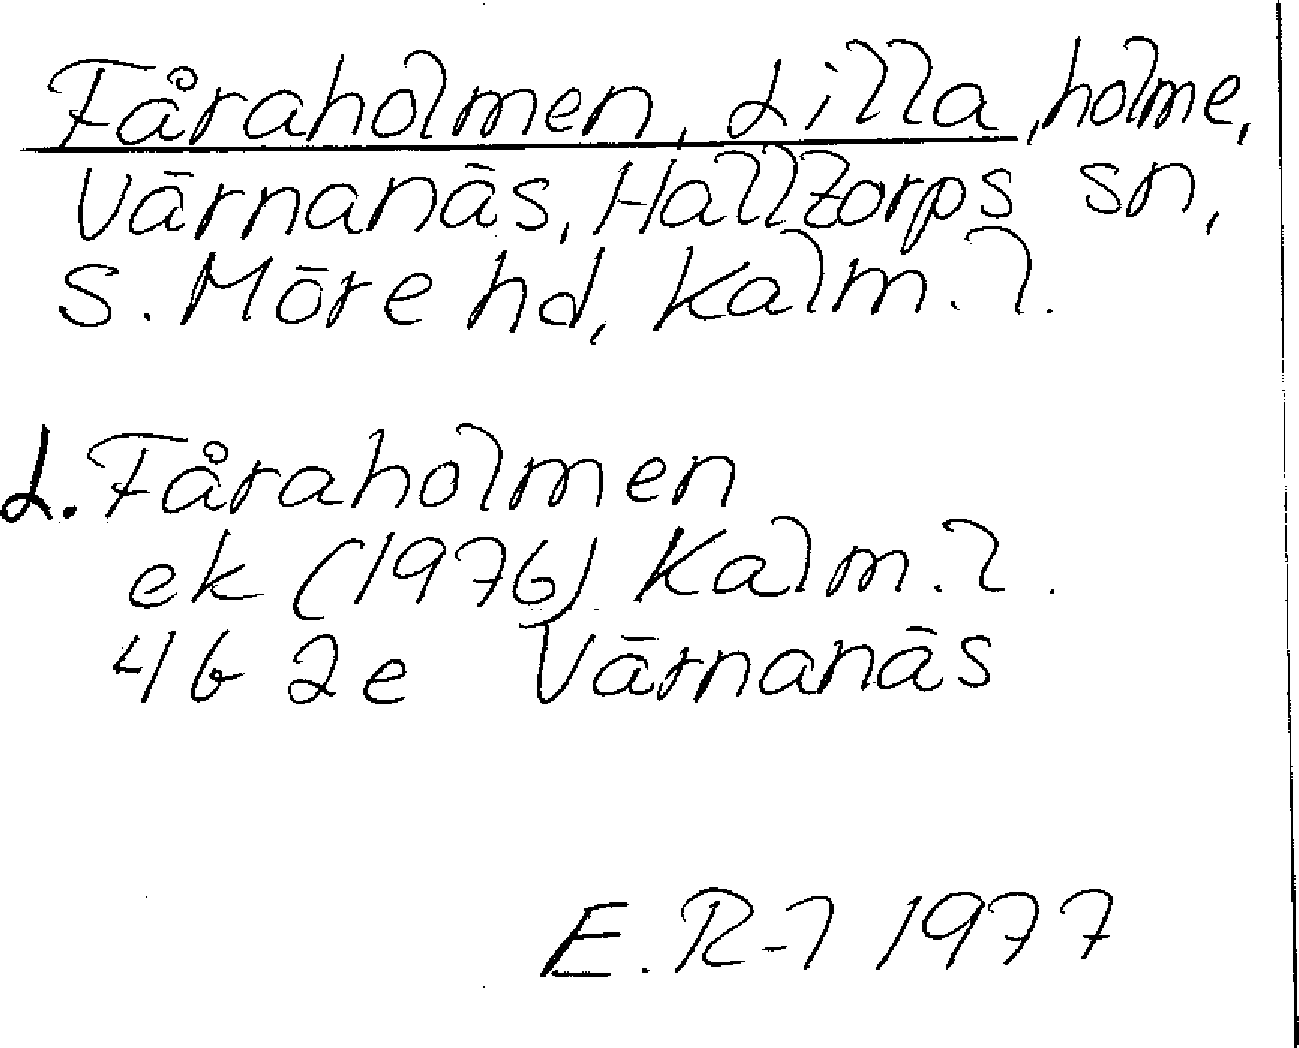 Fåraholmen, Lilla, holme,
Värnanäs, Halltorps sn,
S. Möre hd, Kalm. l.
L. Fåraholmen
ek (1976) Kalm. l.
4G 2e Värnanäs
E. R-l 1977